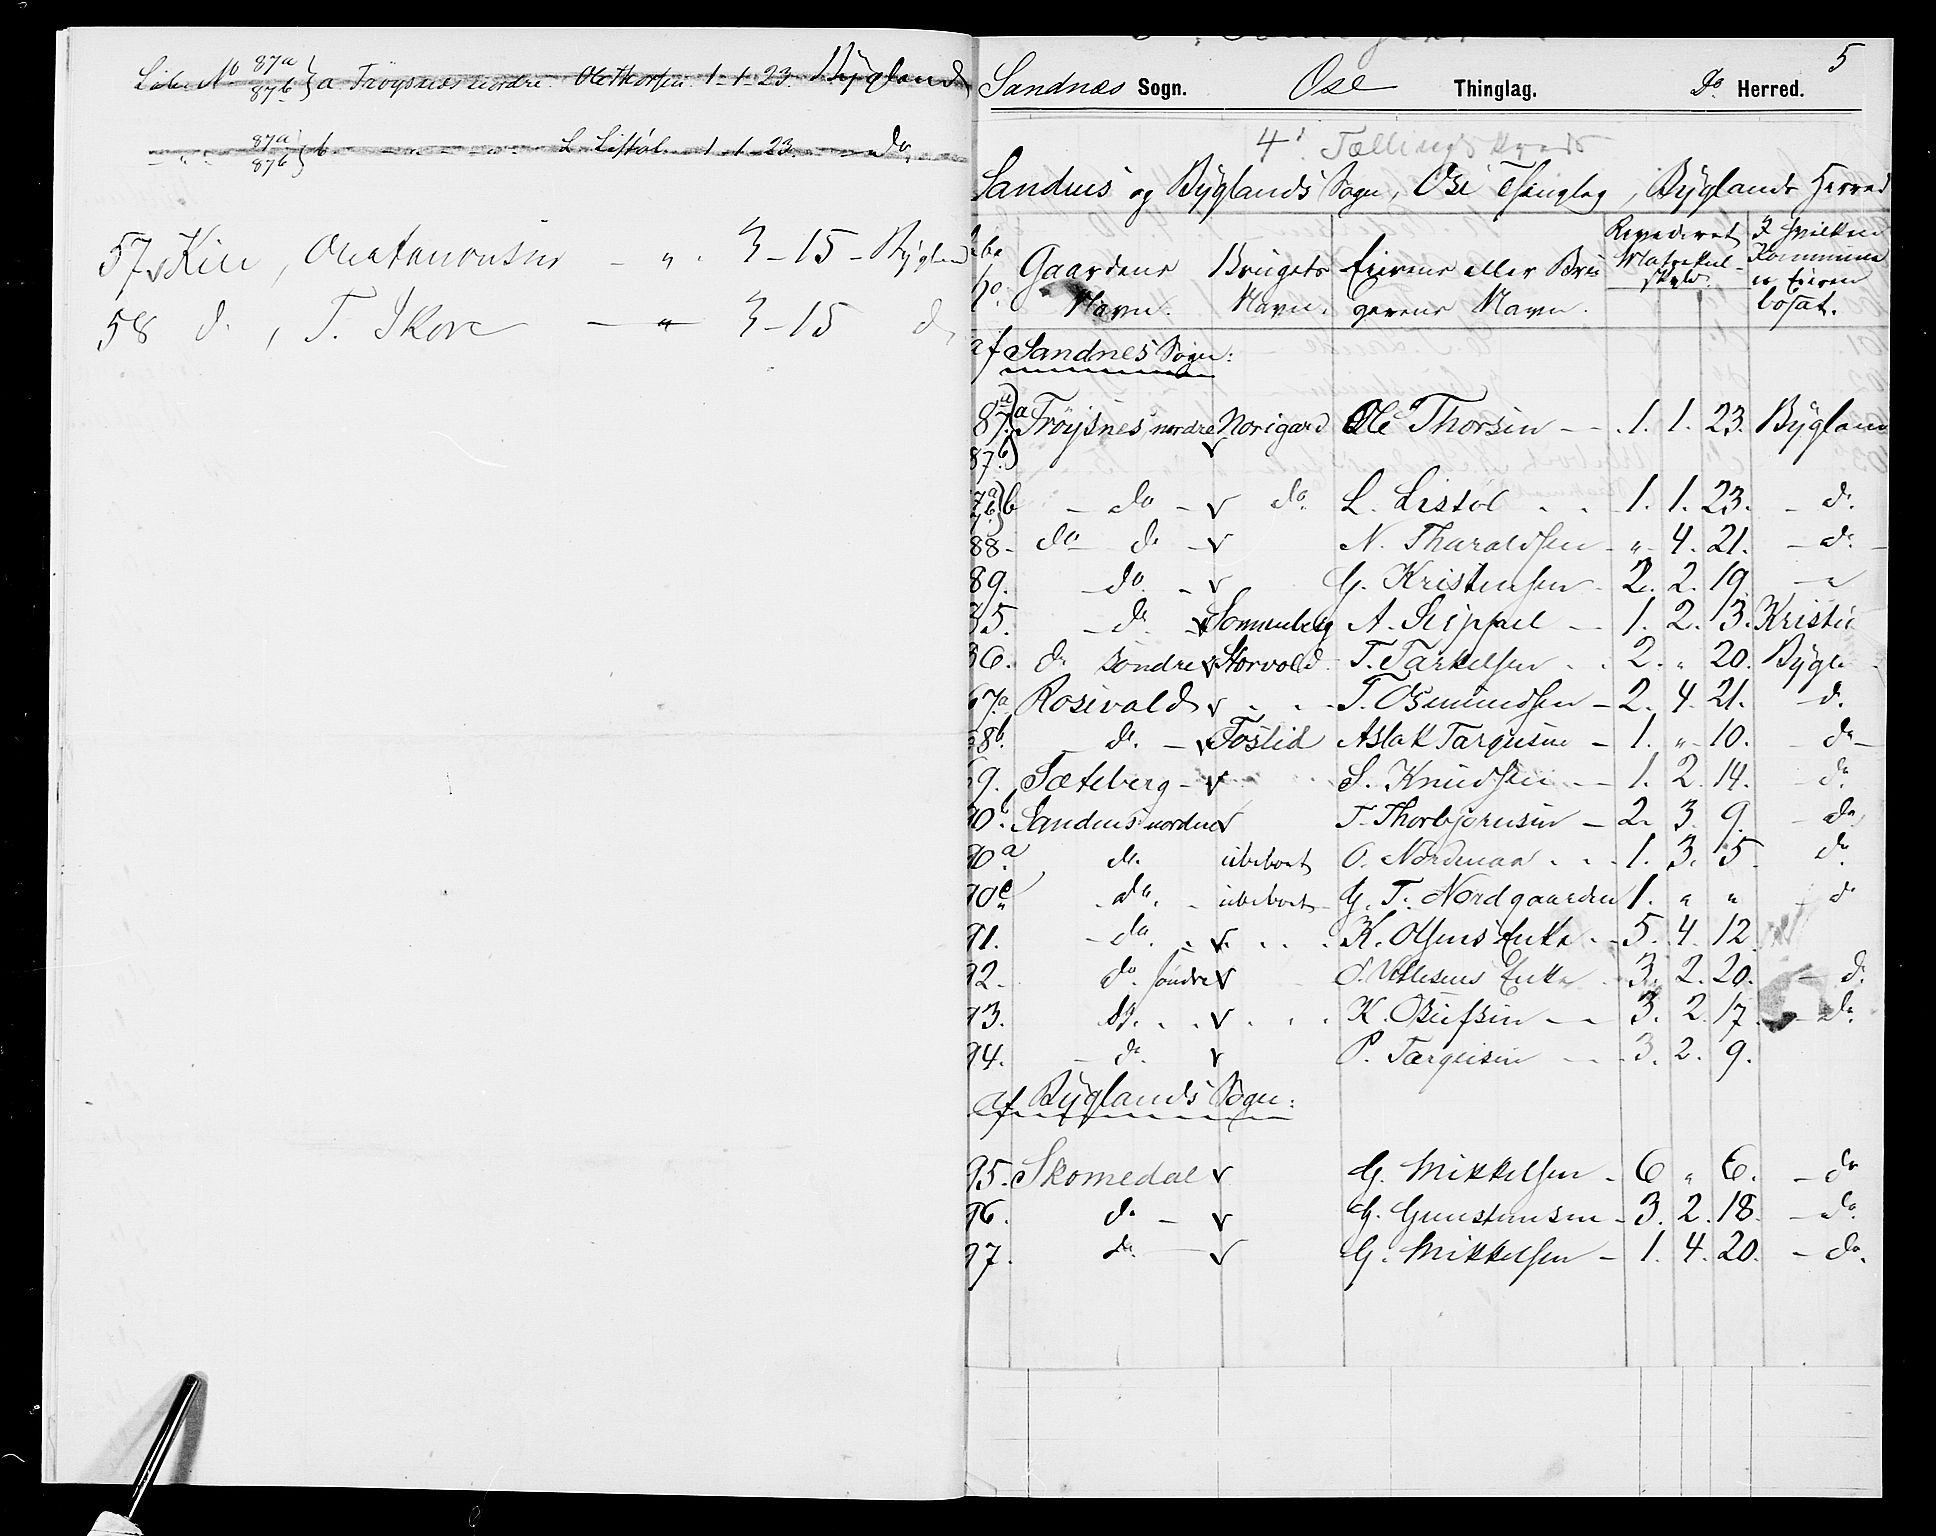 Löbe No 87a 87b } a Tröysnæs nordre. Ole Thorsen 1-1-23. Bygland
— „ — 87a 87b } b — „ — „ — L. Listöl. 1-1-23. — do
57 v Kile, — „ . 3-15 - Bygland
58 d. , T. Skore — „ 3-15 d.
5
Sandnæs Sogn. Ose Thinglag. Do. Herred.
4d Tællingskreds
Sandnes og Byglands Sogn, Ose Thinglag, Byglands Herred
Gaardens Navn. Brugets Navn. Eierens eller Brugerens Navn. Revideret Matrikul-skyld. I hvilken Kommune er Eieren bosat.
af Sandnes Sogn:
87a 87b } a Tröysnes nordre v Norigard Ole Thorsen — 1. 1. 23. Bygland
7a 7b } b — do — v do. L. Listöl . . 1. 1. 23. — d.
88 - do d. — v N. Tharaldsen - „ 4. 21. — d. —
89. do. — v G. Kristensen - 2. 2. 19. — „
35. — d. — v Sonnenberg A. Seippel — 1. 2. 13. Kristi
36. d. söndre v Storvold T. Tarkelsen . . 2. „ 20. Bygl
67a. Rosevald v . . - T. Osmundsen — 2. 4. 21. — d.
68b. — d. — v Foslid Aslak Targusen — 1. „ 10. — do —
69. Sæteberg — v S. Knudsen — 1. 2. 14. — do.
90b. Sandnes nordre v T. Thorbjörnsen — 2. 3. 9. — do.
90a. do. ubeboet O. Nordmaa . . . 1. 3. 15. do.
90c. — do. — ubeboet G. T. Nordgaarden 1. „ „ — d
91. — do. . . v . . . K. Olsens Enke . - 5. 4. 12.
92. do. söndre v Enke . 3. 2. 20. — d.
93. do. . . v . . . K. Osufsen — 3. 2. 17. — do.
94. — d. v P. Targusen — 3. 2. 9.
af Byglands Sogn:
95. Skomedal v G. Mikkelsen - 6 „ 6. — do
96. d. — v G. Gunstensen — 3. 2. 18. — do.
97. do. — v G. Mikkelsen — 1. 4. 20. — do.